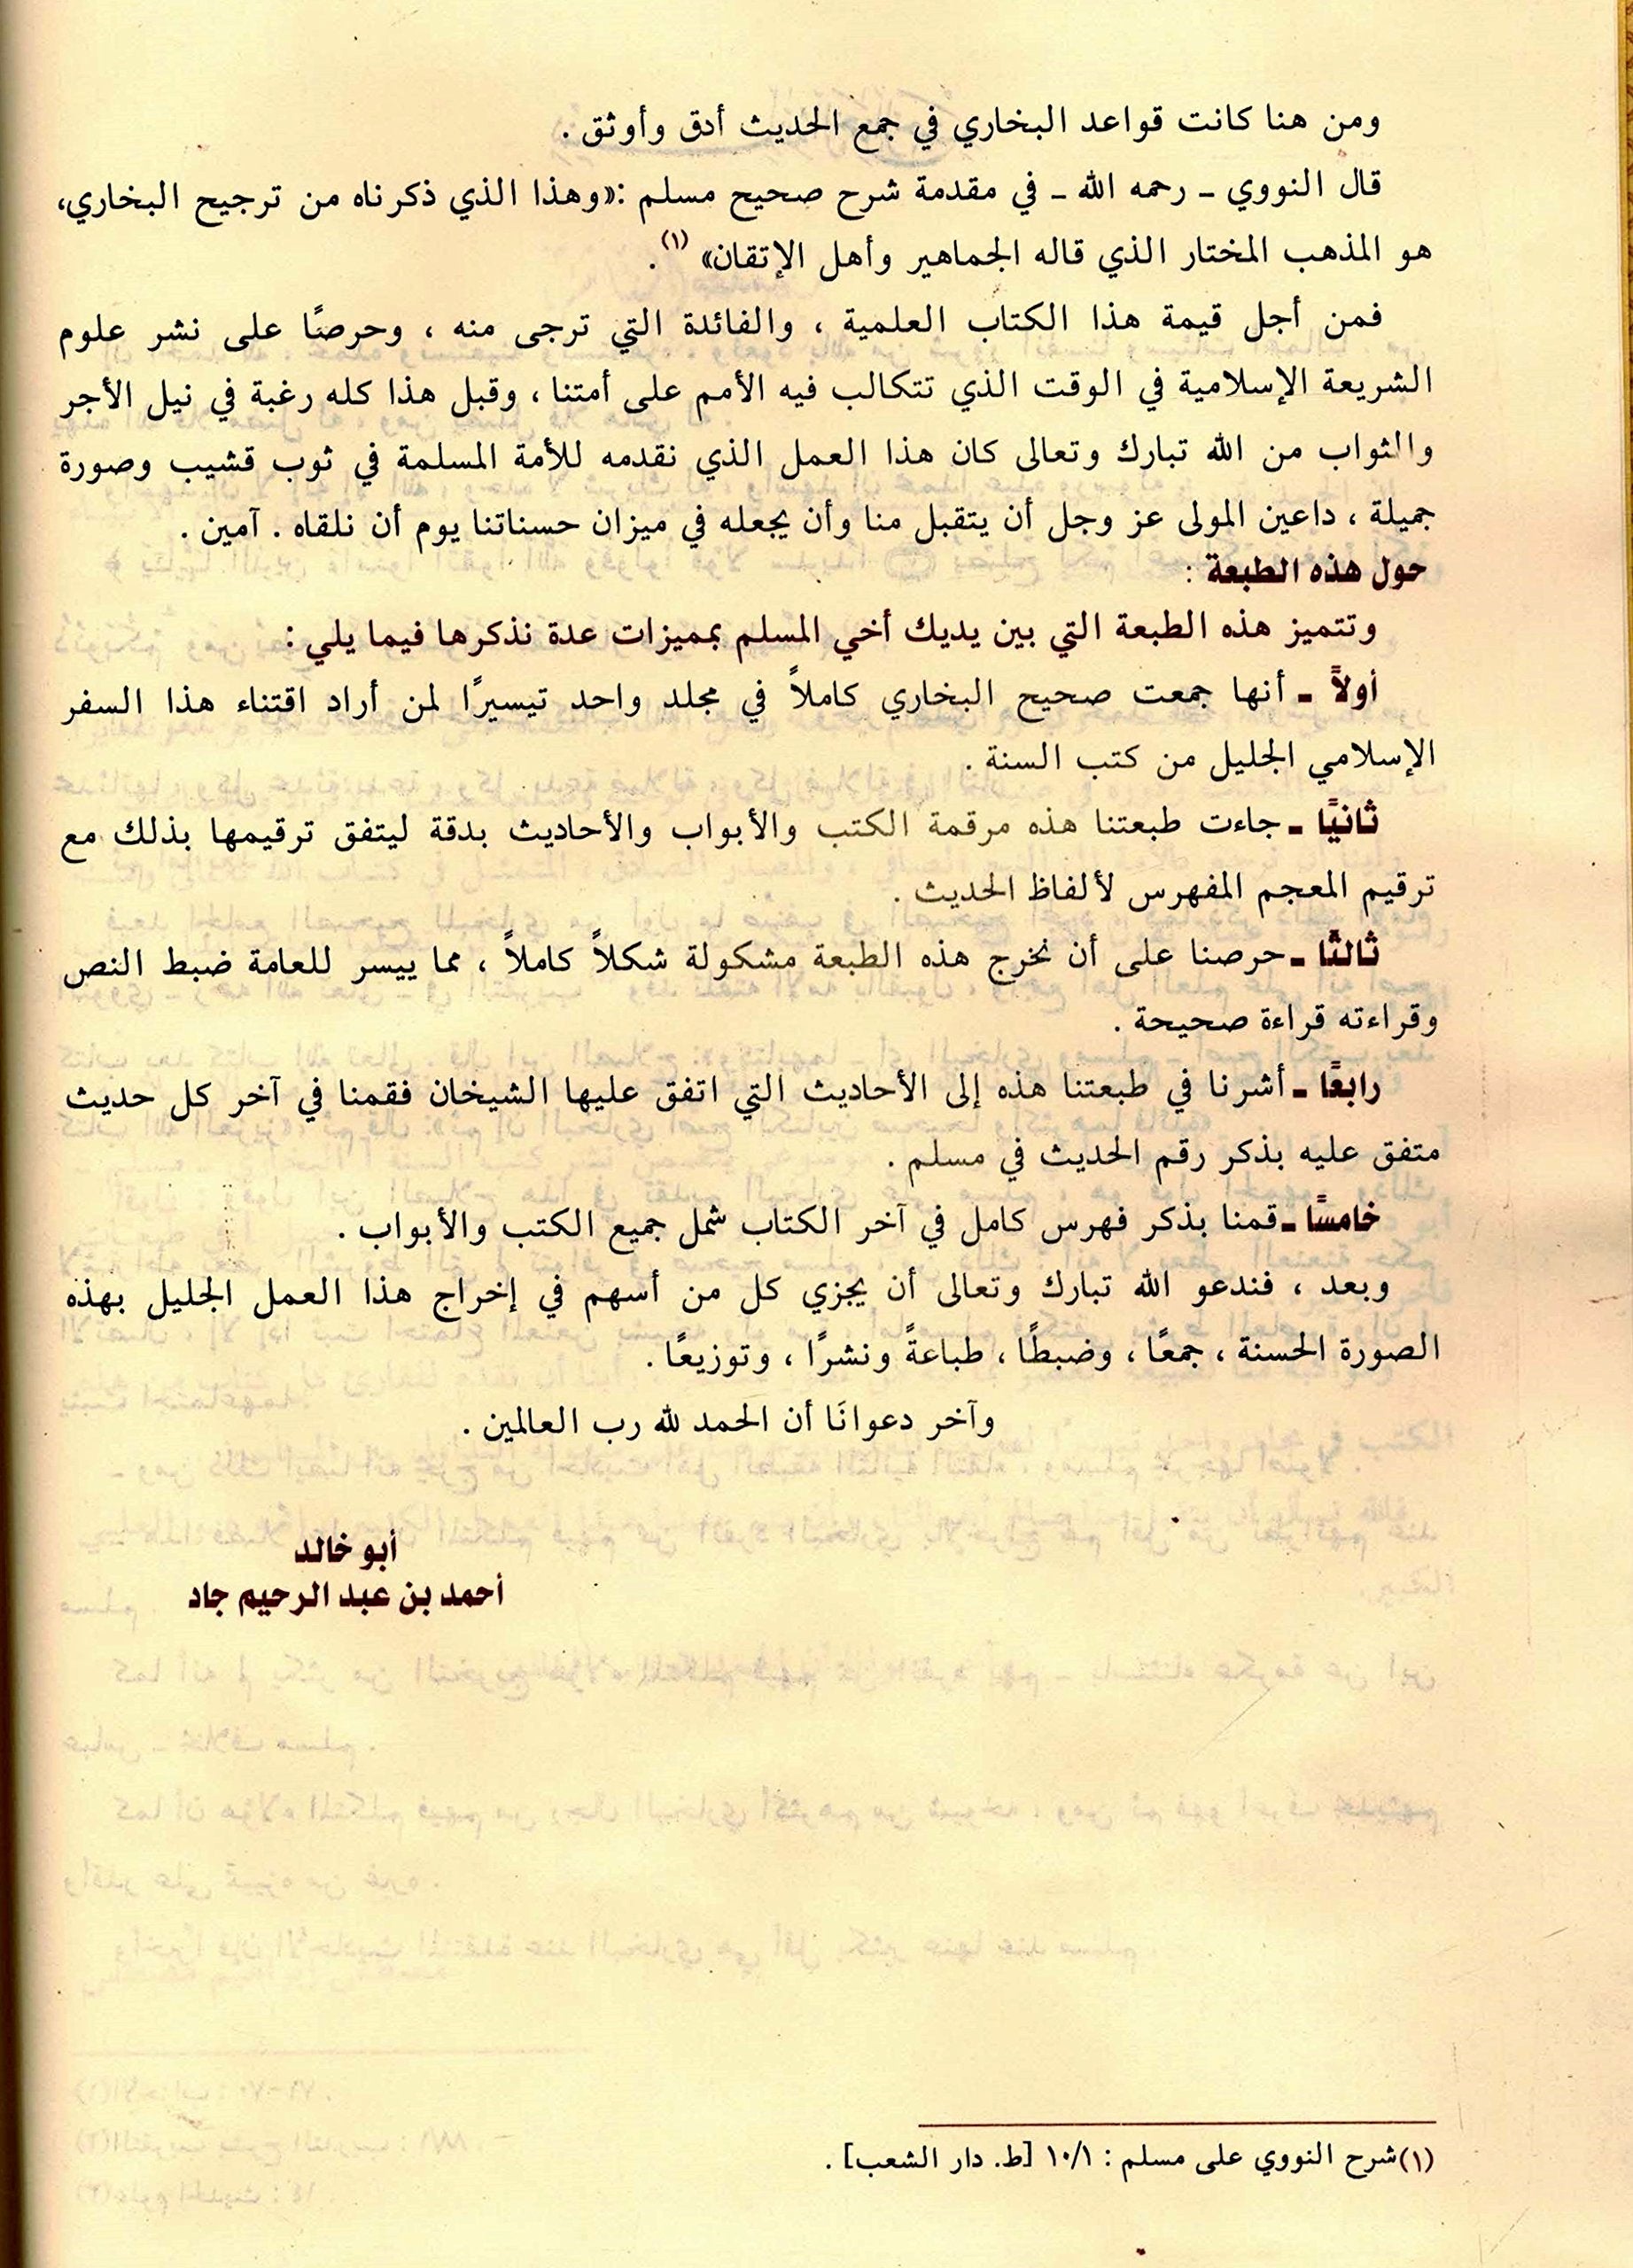 ومن هنا كانت قواعد البخاري في جمع الحديث أدق وأوثق .
قال النووي ـ رحمه الله ـ في مقدمة شرح صحيح مسلم :«وهذا الذي ذكرناه من ترجيح البخاري،
هو المذهب المختار الذي قاله الجماهير وأهل الإتقان» (١) .
فمن أجل قيمة هذا الكتاب العلمية ، والفائدة التي ترجى منه ، وحرصًا على نشر علوم
الشريعة الإسلامية في الوقت الذي تتكالب فيه الأمم على أمتنا ، وقبل هذا كله رغبة في نيل الأجر
والثواب من الله تبارك وتعالى كان هذا العمل الذي نقدمه للأمة المسلمة في ثوب قشيب وصورة
جميلة ، داعين المولى عز وجل أن يتقبل منا وأن يجعله في ميزان حسناتنا يوم أن نلقاه . آمين .
حول هذه الطبعة :
وتتميز هذه الطبعة التي بين يديك أخي المسلم بمميزات عدة نذكرها فيما يلي :
أولاً ـ أنها جمعت صحيح البخاري كاملاً في مجلد واحد تيسيرًا لمن أراد اقتناء هذا السفر
الإسلامي الجليل من كتب السنة .
ثانيًا ـ جاءت طبعتنا هذه مرقمة الكتب والأبواب والأحاديث بدقة ليتفق ترقيمها بذلك مع
ترقيم المعجم المفهرس لألفاظ الحديث .
ثالثًا ـ حرصنا على أن نخرج هذه الطبعة مشكولة شكلاً كاملاً ، مما ييسر للعامة ضبط النص
وقراءته قراءة صحيحة .
رابعًا ـ أشرنا في طبعتنا هذه إلى الأحاديث التي اتفق عليها الشيخان فقمنا في آخر كل حديث
متفق عليه بذكر رقم الحديث في مسلم .
خامسًا ـ قمنا بذكر فهرس كامل في آخر الكتاب شمل جميع الكتب والأبواب .
وبعد ، فندعو الله تبارك وتعالى أن يجزي كل من أسهم في إخراج هذا العمل الجليل بهذه
الصورة الحسنة ، جمعًا ، وضبطًا ، طباعةً ونشرًا ، وتوزيعًا .
وآخر دعوانَا أن الحمد لله رب العالمين .
أبو خالد
أحمد بن عبد الرحيم جاد
(١)شرح النووي على مسلم : ١٠/١ [ط. دار الشعب] .